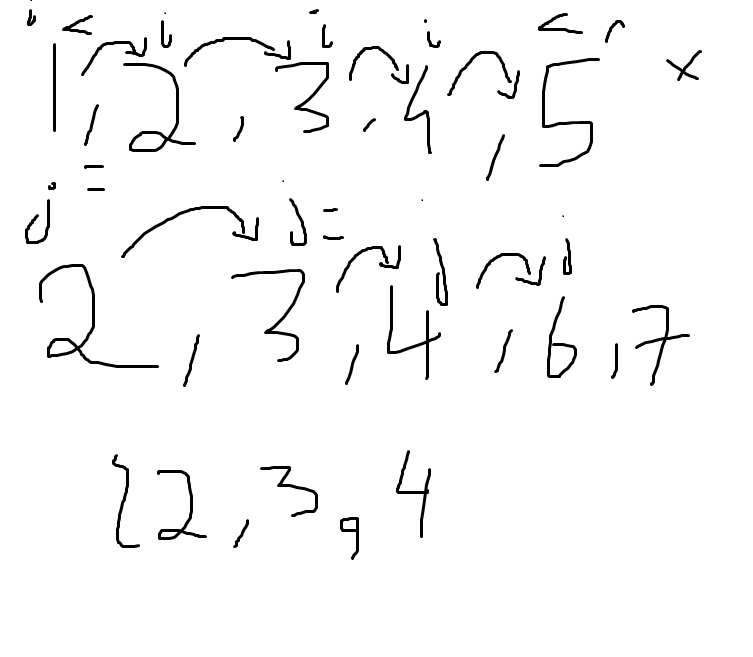 i < i i i < r
1, 2, 3, 4, 5 ×
j = j = j j
2, 3, 4, 6, 7
[2, 3, 4